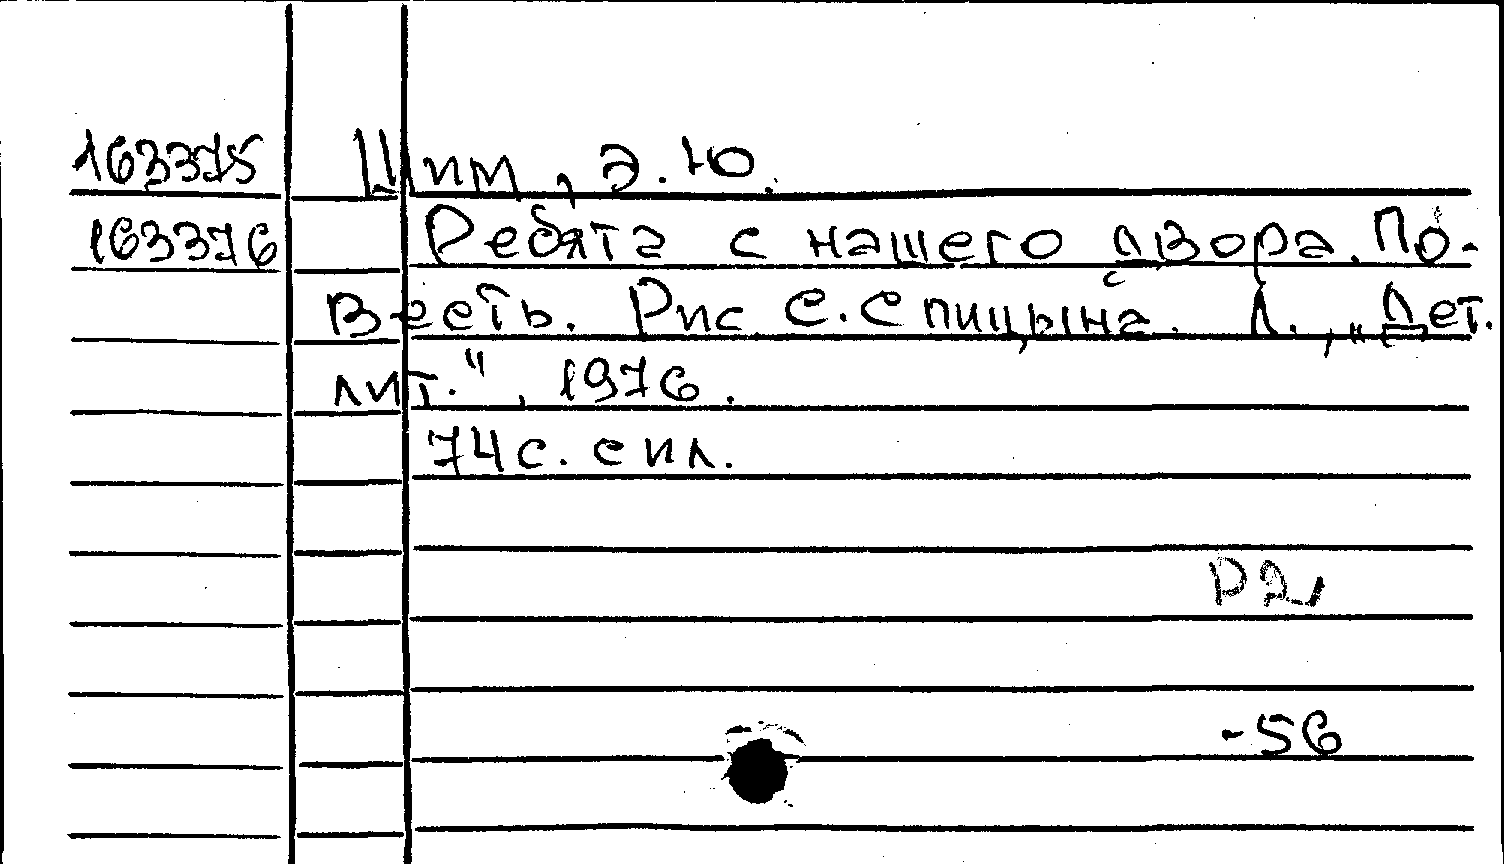 163375 Шим, Э.Ю.
163376 Ребята с нашего двора. По-
весть. Рис. С. Спицына. Л., „Дет.
лит.", 1976.
74 с. с ил.
Р2
-56